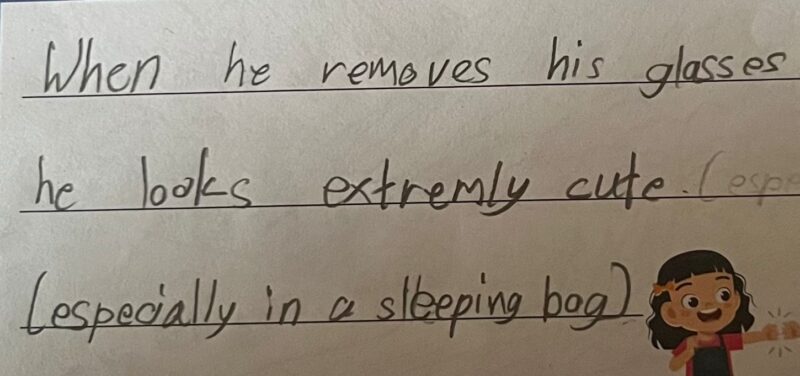 When he removes his glasses
he looks extremly cute. (espe
(especially in a sleeping bag)